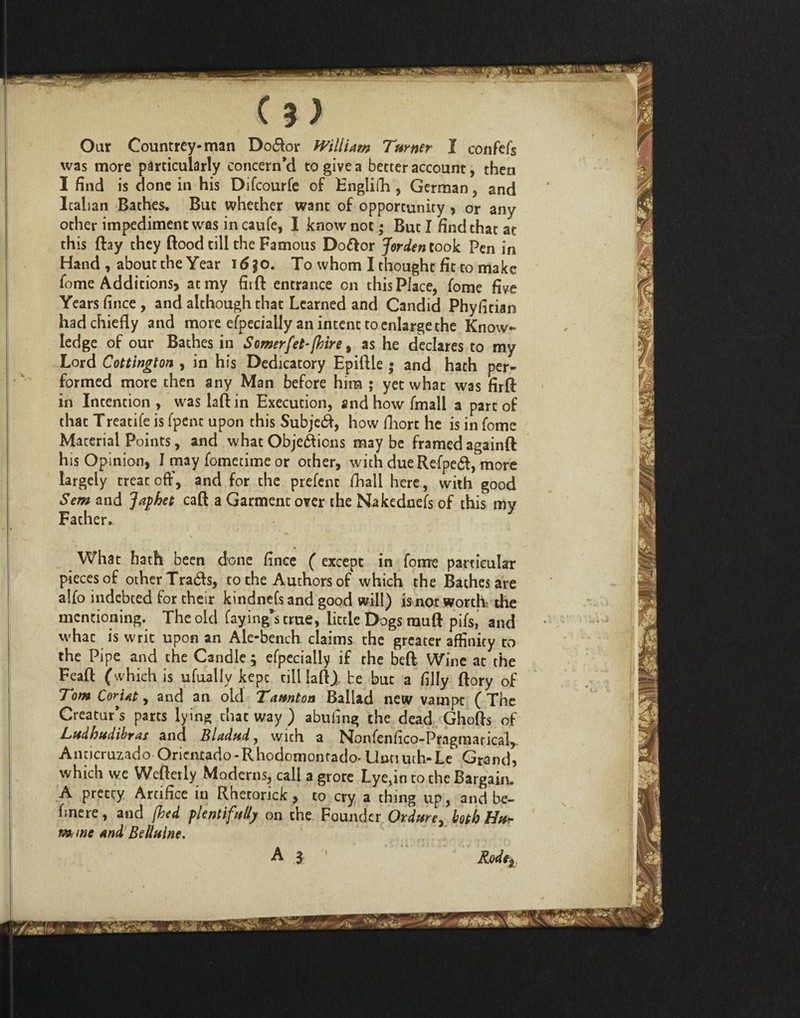 (3)
Our Countrey-man Doctor William Turner I confeſs
was more particularly concern'd to give a better account, then
I find is done in his Diſcourſe of Engliſh, German, and
Italian Bathes. But whether want of opportunity, or any
other impediment was in cauſe, I know not; But I find that at
this ſtay they ſtood till the Famous Doctor Jorden took Pen in
Hand, about the Year 1630. To whom I thought fit to make
ſome Additions, at my firſt entrance on this Place, ſome five
Years ſince, and although that Learned and Candid Phyſitian
had chiefly and more eſpecially an intent to enlarge the Know-
ledge of our Bathes in Somerſet-ſhire, as he declares to my
Lord Cottington, in his Dedicatory Epiſtle; and hath per-
formed more then any Man before him; yet what was firſt
in Intention, was laſt in Execution, and how ſmall a part of
that Treatiſe is ſpent upon this Subject, how ſhort he is in ſome
Material Points, and what Objections may be framed againſt
his Opinion, I may ſometime or other, with due Reſpect, more
largely treat off, and for the preſent ſhall here, with good
Sem and Japhet caſt a Garment over the Nakedneſs of this my
Father.
What hath been done ſince (except in ſome particular
pieces of other Tracts, to the Authors of which the Bathes are
alſo indebted for their kindneſs and good will) is not worth the
mentioning. The old ſaying's true, little Dogs muſt piſs, and
what is writ upon an Ale-bench claims the greater affinity to
the Pipe and the Candle; eſpecially if the beſt Wine at the
Feaſt (which is uſually kept till laſt) be but a ſilly ſtory of
Tom Coriat, and an old Taunton Ballad new vampt (The
Creatur's parts lying that way) abuſing the dead Ghoſts of
Ludhudibras and Bladud, with a Nonſenſico-Pragmatical,
Anticruzado-Orientado-Rhodomontado-Untruth-Le Grand,
which we Weſterly Moderns, call a grote Lye, in to the Bargain.
A pretty Artifice in Rhetorick, to cry a thing up, and be-
ſmere, and ſhed plentifully on the Founder Ordure, both Hu-
mane and Belluine.
A 3 Rode,